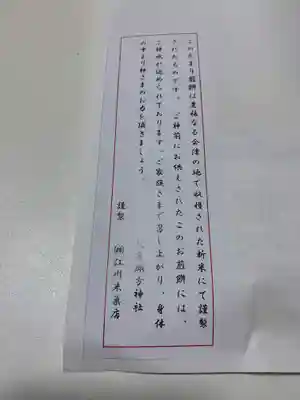 このたまり煎餅は豊穣なる会津の地で収穫された新米にて謹製
されたものです。ご神前にお供えされたこのお煎餅には、
が込められております。ご家族さまで召し上がり、身体
神さまのお力を頂きましょう。
諏方神社
謹製 ㈱江川米菓店